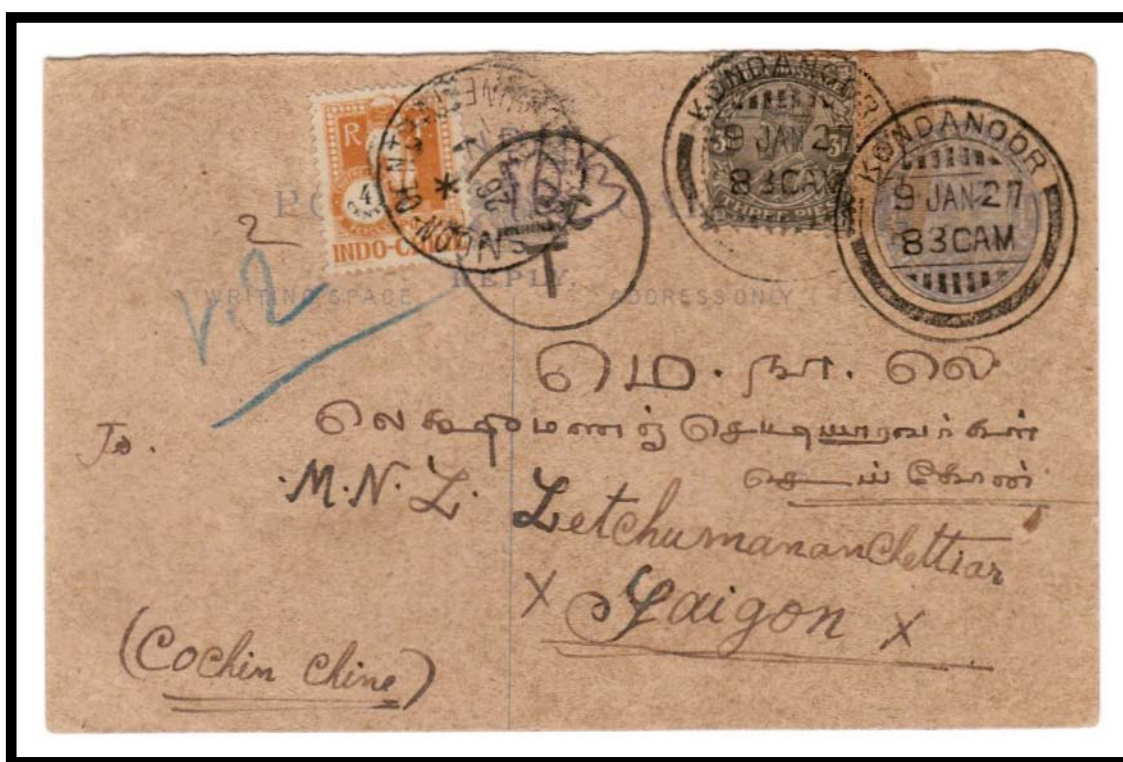 KONDANOOR
9 JAN 27
8 3CAM
THREE PIES
KONDANOOR
9 JAN 27
8 3CAM
R F
4
CENTS
INDO-CHINE
T
REPLY
WRITING SPACE
ADDRESS ONLY
2
மெ. நா. லெ
லெகஷுமணஞ் செட்டியாரவர்கள்
செய்கோன்
To.
M. N. L. Letchumanan Chettiar
X Saigon X
(Cochin Chine)